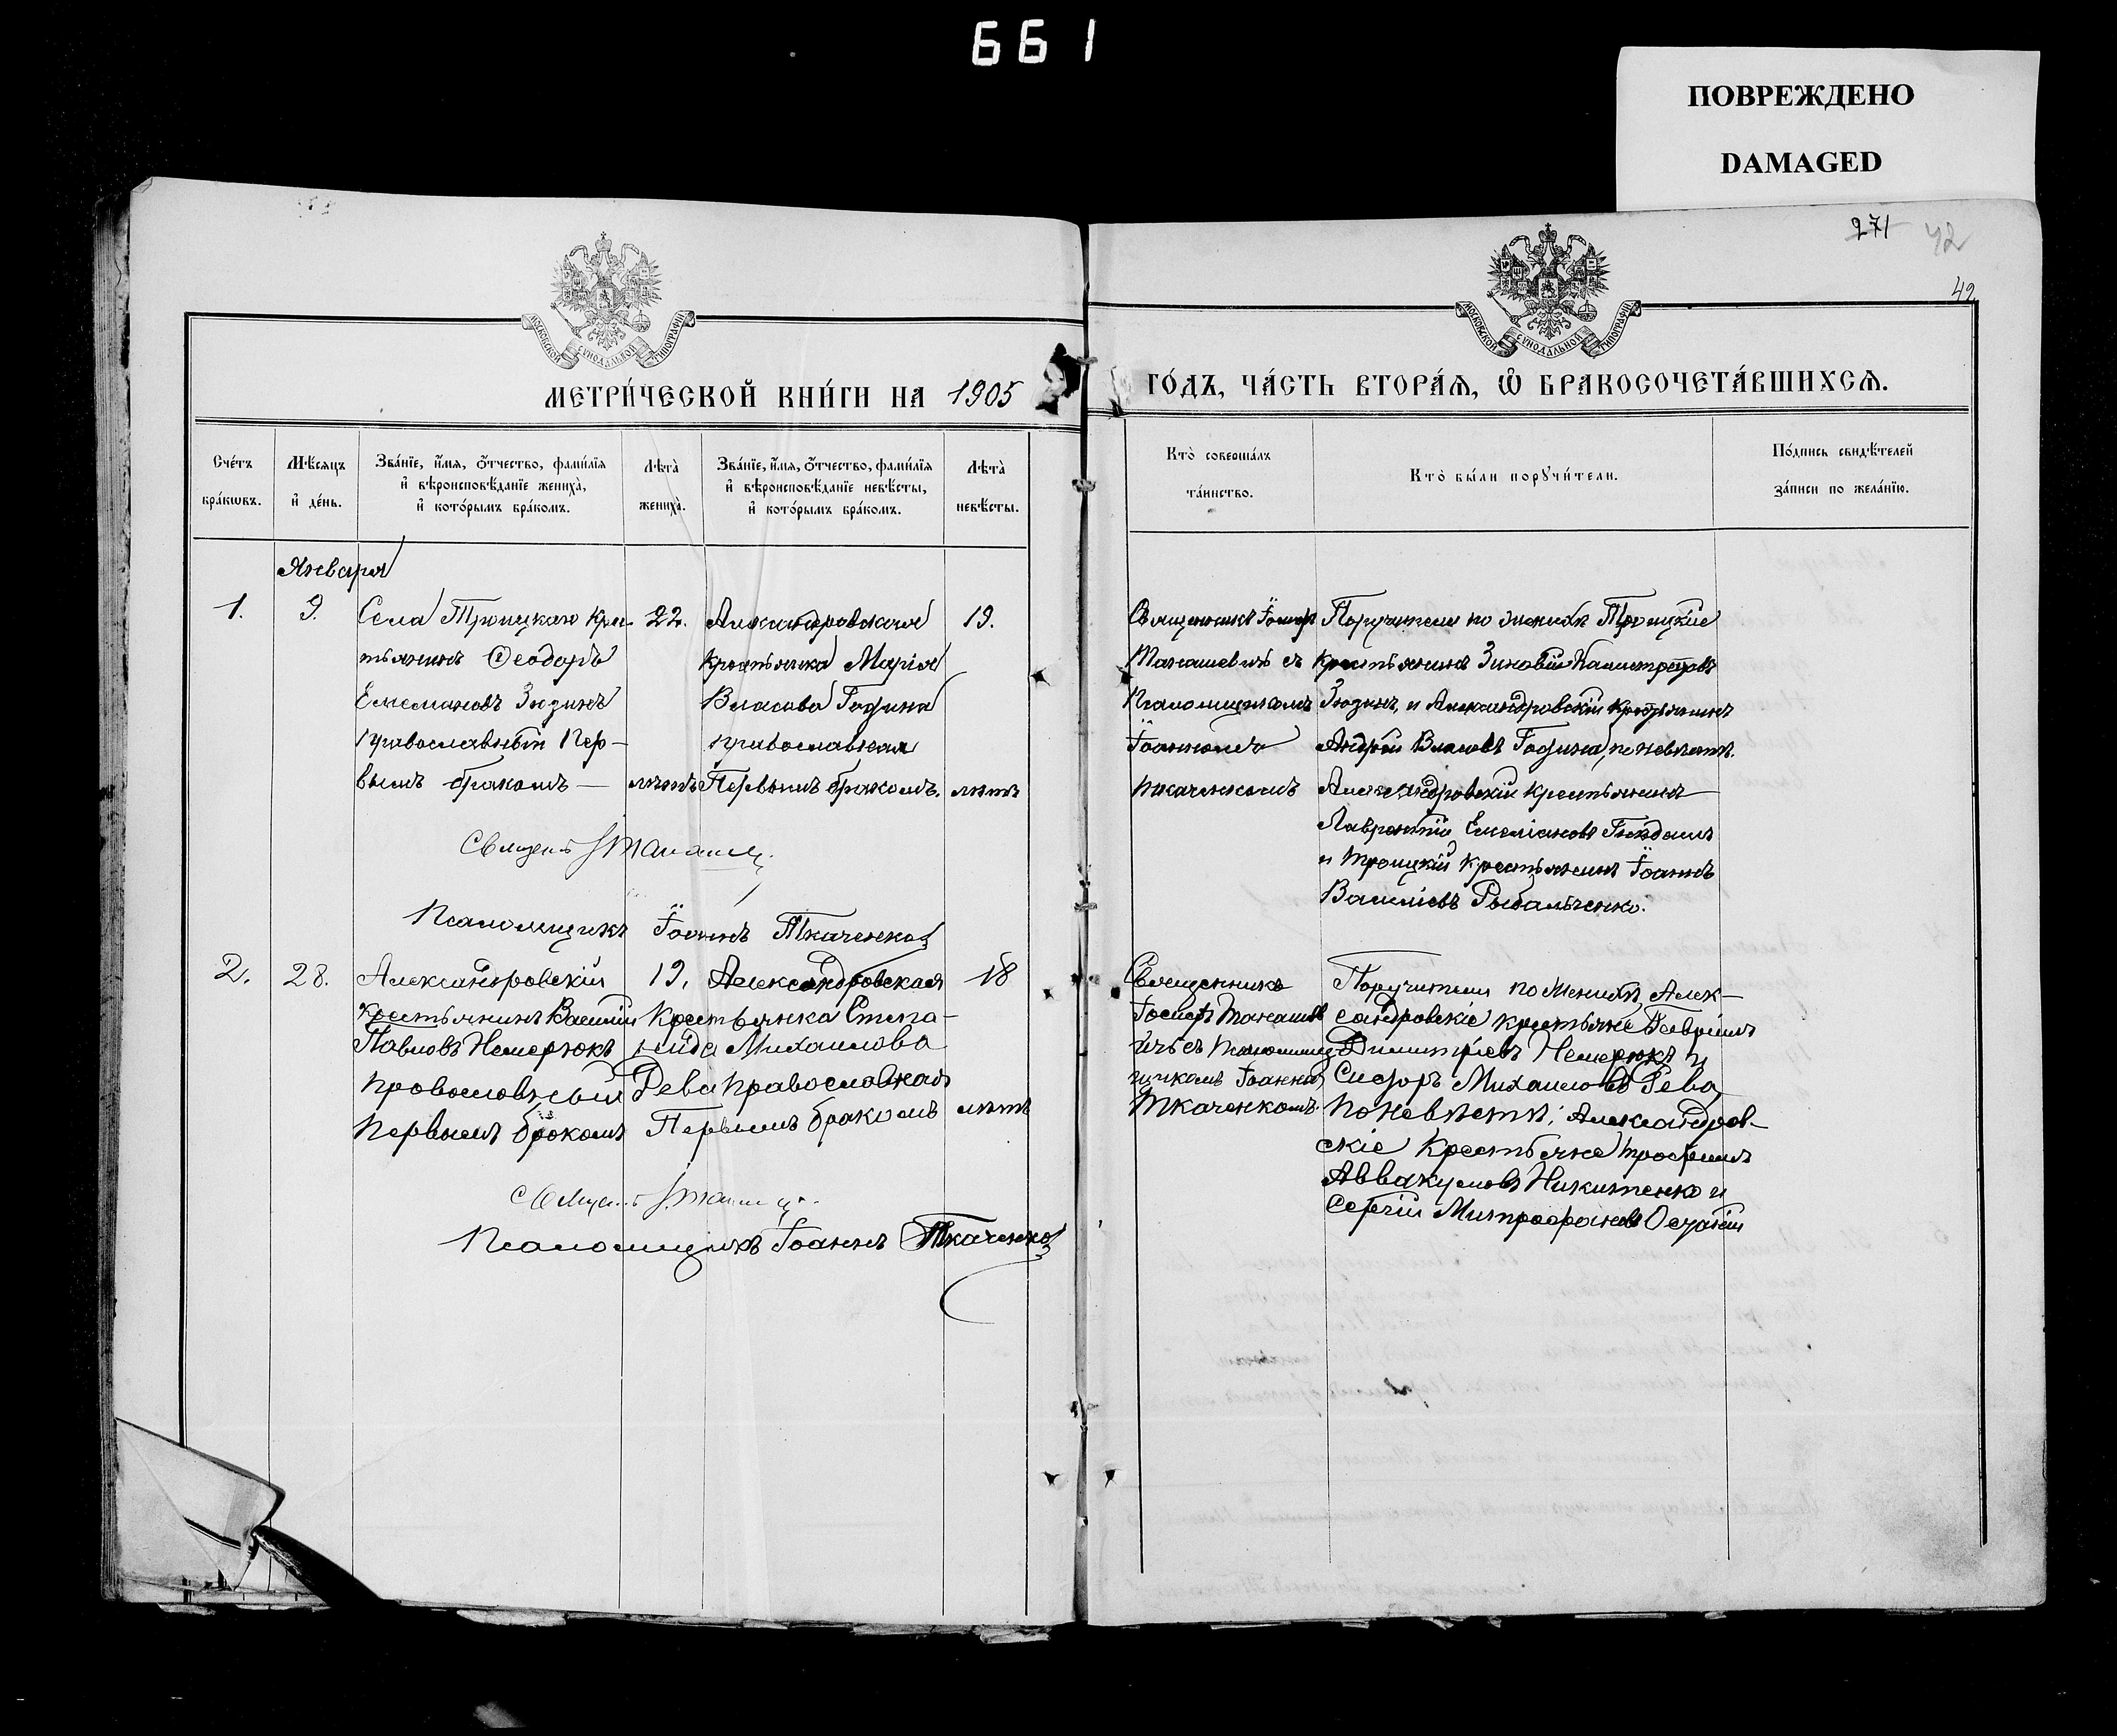 661
ПОВРЕЖДЕНО
DAMAGED
271 42
42
МОСКОВСКОЙ СѴНОДАЛЬНОЙ ТИПОГРАФІИ
МОСКОВСКОЙ СѴНОДАЛЬНОЙ ТИПОГРАФІИ
МЕТРИ́ЧЕСКОЙ КНИ́ГИ НА 1905
ГО́ДЪ, ЧА́СТЬ ВТОРА́Я, Ѡ҆ БРАКОСОЧЕТА́ВШИХСЯ.
Сче́тъ
бра́кѡвъ.
Мѣ́сяцъ
и҆ де́нь.
Зва́нїе, и҆́мя, ѻ҆́тчество, фами́лїя
и҆ вѣроисповѣ́данїе жениха̀,
и҆ кото́рымъ бра́комъ.
Лѣта̀
жениха̀.
Зва́нїе, и҆́мя, ѻ҆́тчество, фами́лїя
и҆ вѣроисповѣ́данїе невѣ́сты,
и҆ кото́рымъ бра́комъ.
Лѣта̀
невѣ́сты.
Кто̀ соверша́лъ
та́инство.
Кто̀ бы́ли порꙋчи́тели.
По́дпись свидѣ́телей
за́писи по жела́нїю.
Января
1.
9.
Села Троицкаго кре-
тьянинъ Ѳеодоръ
Емельяновъ Зюзинъ
православный Пер-
вымъ бракомъ —
22.
лѣтъ
Александровская
крестьянка Марія
Власова Годуна
православная
Первымъ бракомъ.
19.
лѣтъ
Священникъ Іосифъ
Танашевичъ съ
Псаломщикомъ
Іоанномъ
Ткаченкомъ
Поручители по женихѣ Троицкіе
крестьянинъ Зиновій Калистратовъ
Зюзинъ, и Александровскій крестьянинъ
Андрей Власовъ Годуна, по невѣстѣ.
Александровскій крестьянинъ
Лаврентій Емеліановъ
и Троицкій крестьянинъ Іоаннъ
Василіевъ Рыбальченко.
Священ. І. Танашев.
Псаломщикъ Іоаннъ Ткаченко
2.
28.
Александровскій
крестьянинъ Василій
Павловъ Немерюкъ
православный
Первымъ бракомъ
19.
Александровская
Крестьянка Степа-
нида Михаилова
Рева православная
Первымъ бракомъ
18
лѣтъ
Священникъ
Іосифъ Танашев
ичъ съ
щикомъ Іоанномъ
Ткаченкомъ.
Поручители по женихѣ, Алек-
сандровскіе крестьяне Гавріилъ
Димитріевъ Немерюкъ и
Сидоръ Михаиловъ Рева,
по невѣстѣ: Александров-
скіе Крестьяне Трофимъ
Аввакумовъ Никитенко и
Сергій Митрофановъ
Священ. І. Танашев.
Псаломщикъ Іоаннъ Ткаченко